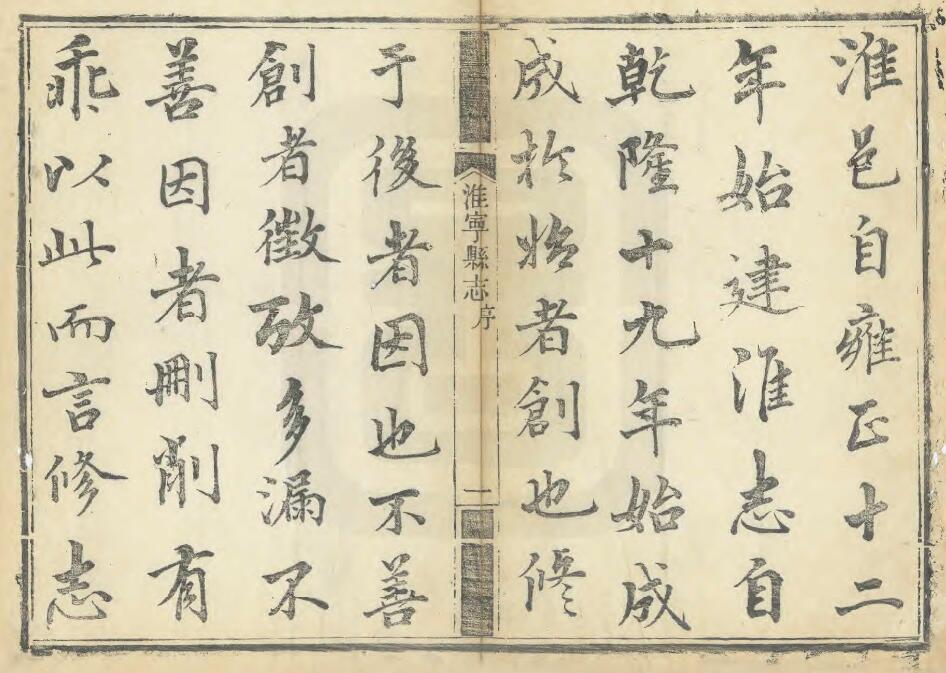 淮邑自雍正十二
年始建淮志自
乾隆十九年始成
成於始者創也修
淮寧縣志
序
一
于後者因也不善
創者徵攷多漏不
善因者刪削有
乖以此而言修志